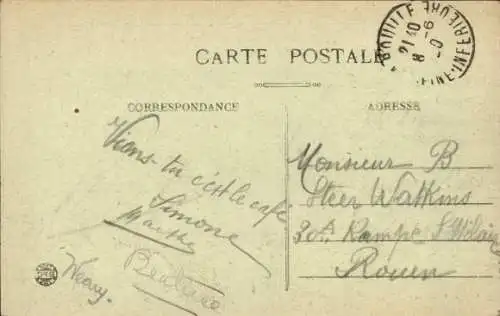 CARTE POSTALE
CORRESPONDANCE
ADRESSE
Viens-tu c'est le café
Simone
Marthe
Weary.
Monsieur B
Steer Watkins
30A Rampe St Hilaire
Rouen
BOUILLE
21 40
8 -6
SEINE-INFERIEURE